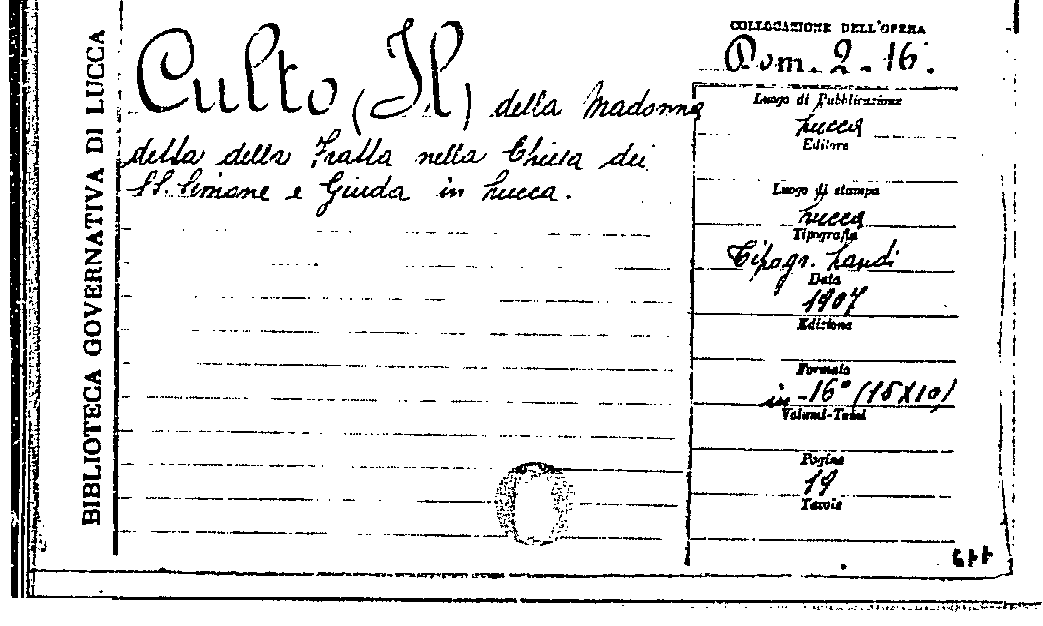 BIBLIOTECA GOVERNATIVA DI LUCCA
Culto (Il) della Madonna
detta della Fratta nella Chiesa dei
SS. Simone e Giuda in Lucca.
COLLOCAZIONE DELL'OPERA
Dom. 2. 16.
Luogo di Pubblicazione
Lucca
Editore
Luogo di stampa
Lucca
Tipografia
Tipogr. Landi
Data
1907
Edizione
Formato
in-16° (15X10)
Volumi-Tomi
Pagine
19
Tavole